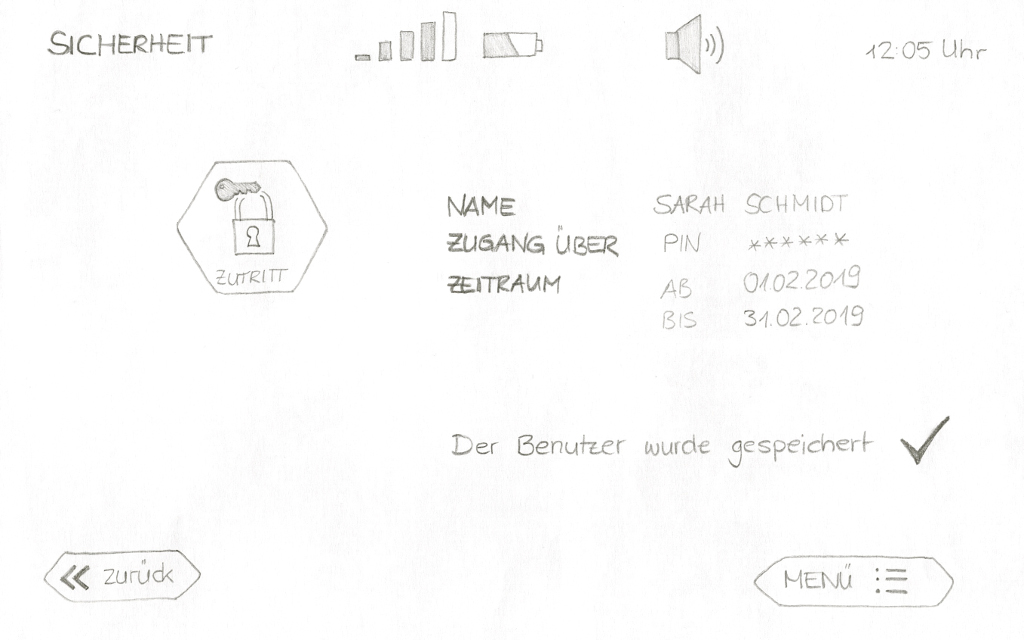 SICHERHEIT
12:05 Uhr
ZUTRITT
NAME SARAH SCHMIDT
ZUGANG ÜBER PIN ******
ZEITRAUM AB 01.02.2019
BIS 31.02.2019
Der Benutzer wurde gespeichert
zurück
MENÜ